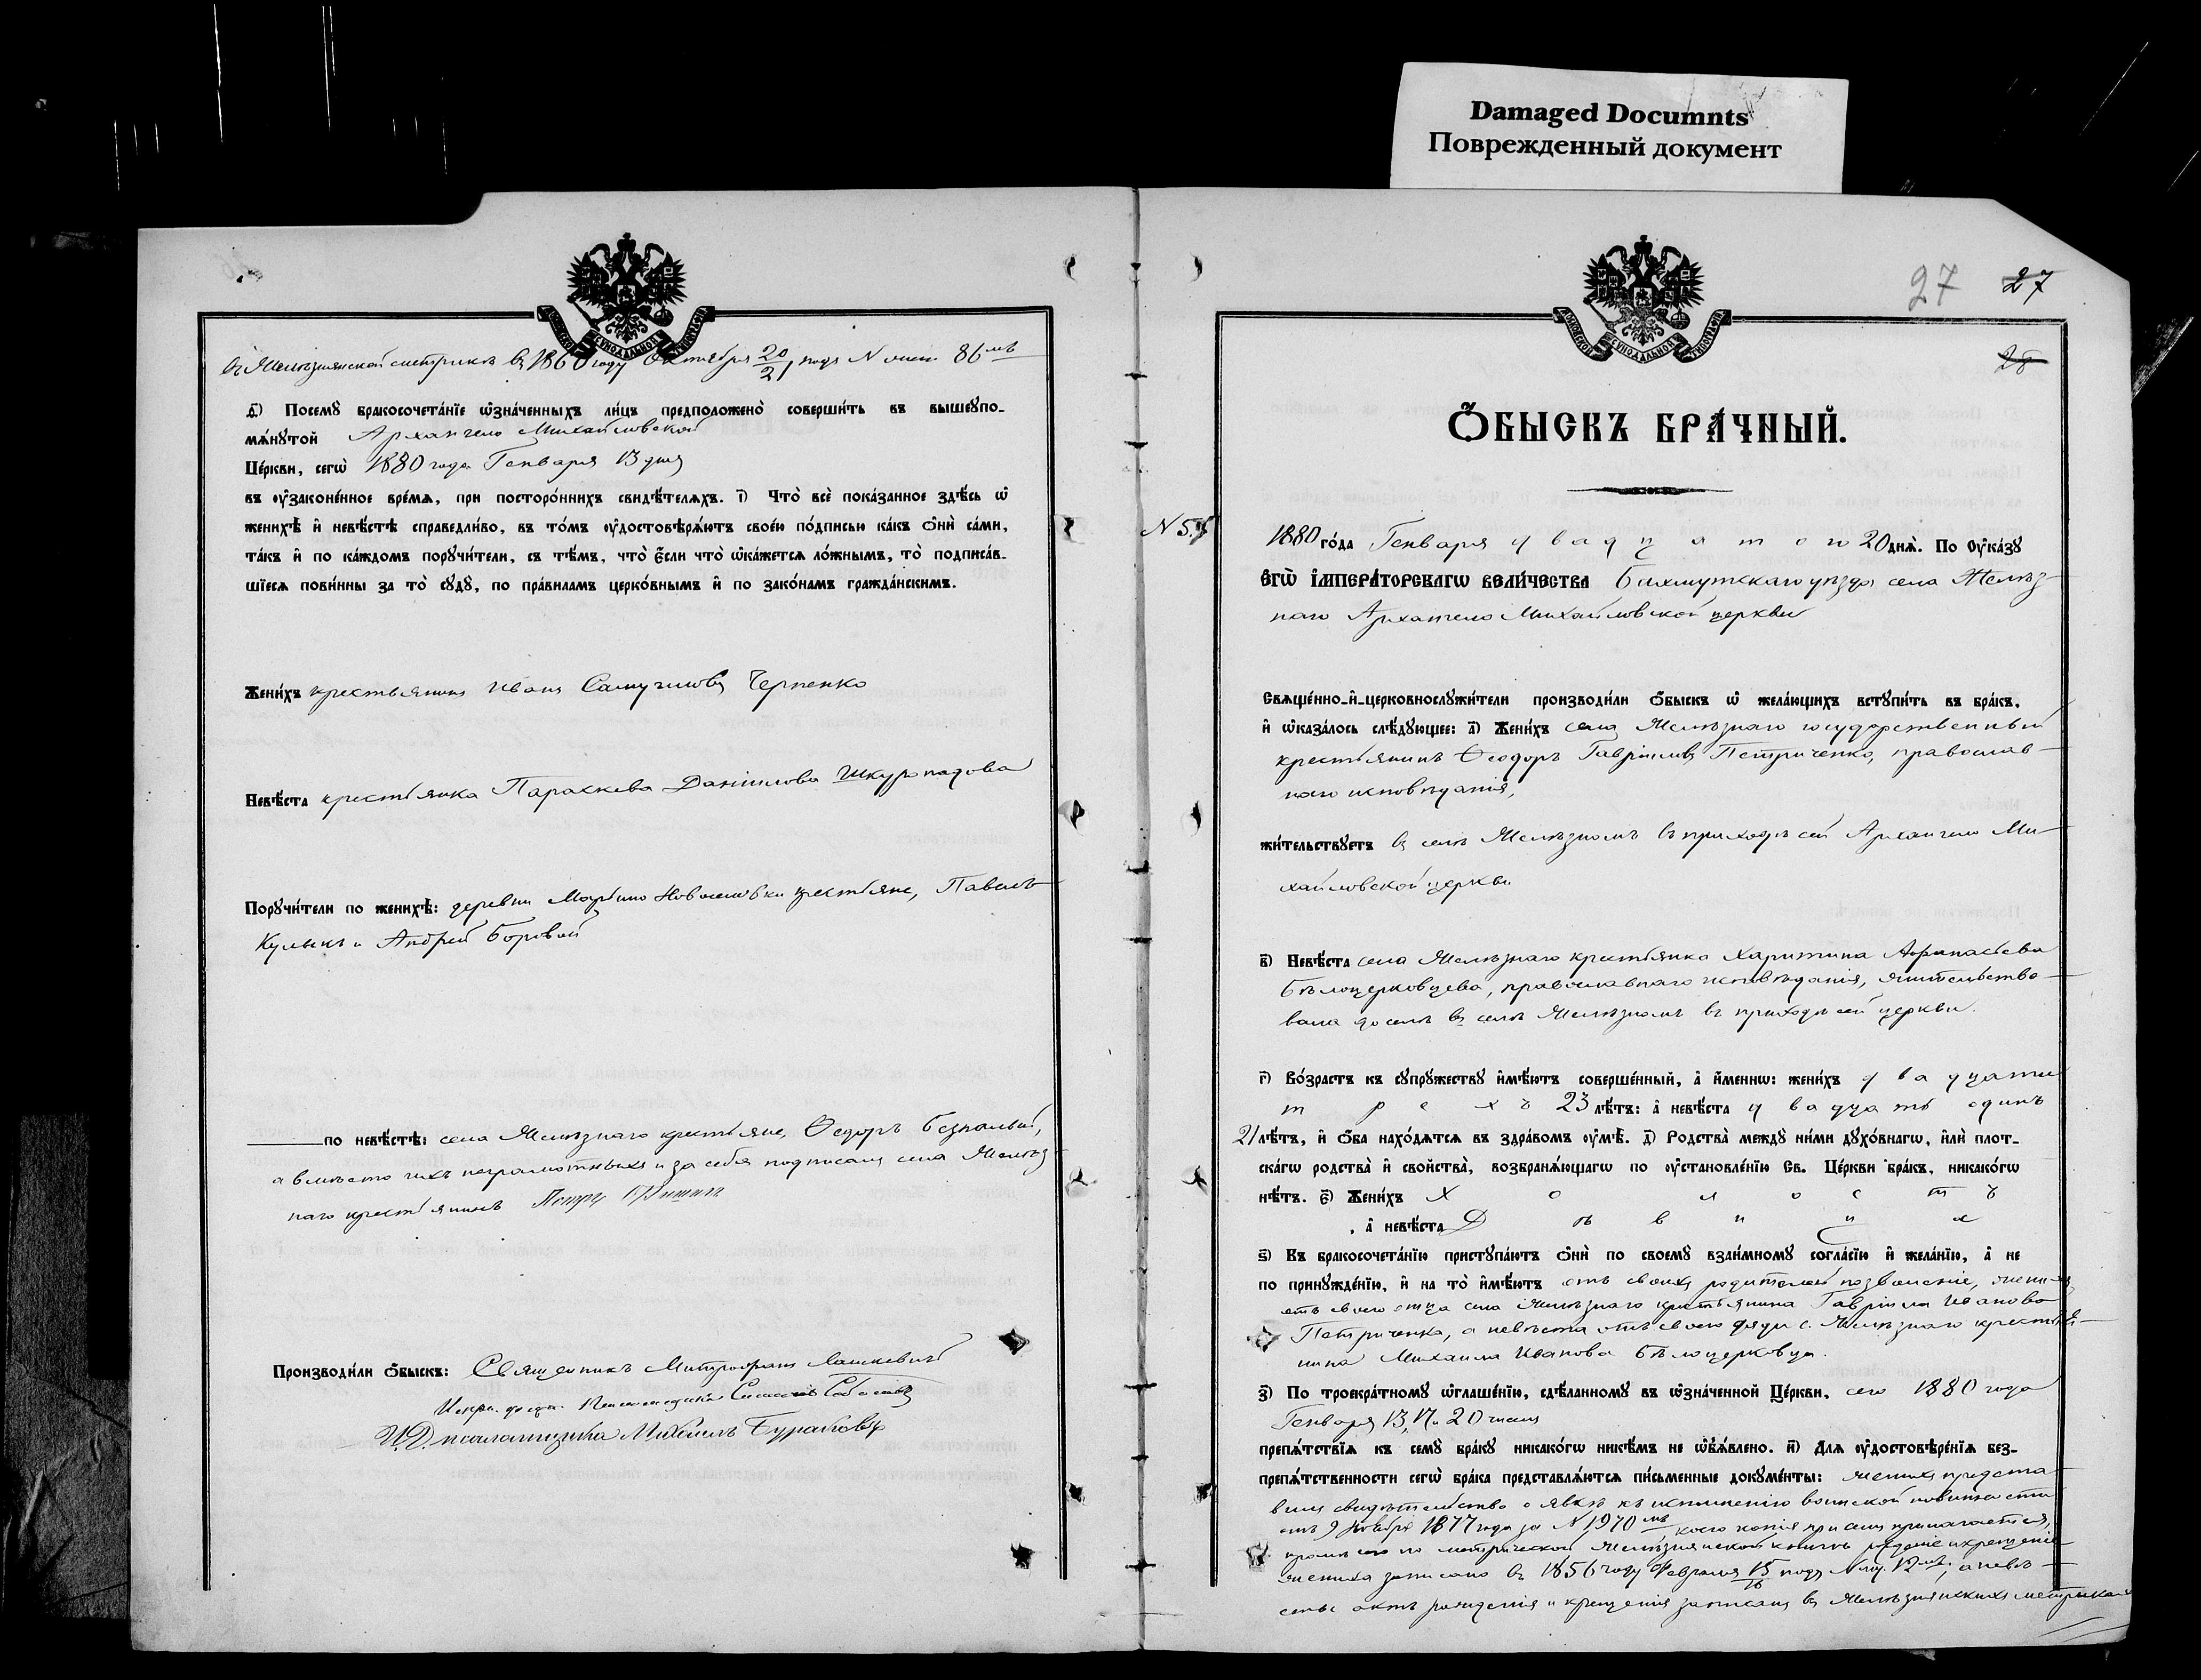 Damaged Documnts
Поврежденный документ
въ Желѣзнянской метрикѣ въ 1860 году Октября 20/21 подъ N 86мъ
ѳ҃) Посемꙋ бракосочета́нїе ѡ҆зна́ченныхъ ли́цъ предположено̀ соверши́ть въ вышеꙋпо-
мѧ́нꙋтой Архангело Михайловской
Це́ркви, сегѡ̀ 1880 года Генваря 13 дня
въ ᲂу҆законе́нное вре́мѧ, при посторо́ннихъ свидѣ́телѧхъ. і҃) Что̀ всѐ пока́занное здѣ́сь ѡ҆
женихѣ̀ и҆ невѣ́стѣ справедли́во, въ то́мъ ᲂу҆достовѣрѧ́ютъ свое́ю по́дписью ка́къ ѻ҆нѝ са́ми,
та́къ и҆ по ка́ждомъ порꙋчи́тели, съ тѣ́мъ, что̀ є҆́сли что̀ ѡ҆ка́жетсѧ ло́жнымъ, то̀ подписа́в-
шїесѧ пови́нны за то̀ сꙋдꙋ̀, по пра́виламъ церко́внымъ и҆ по зако́намъ гражда́нскимъ.
Жени́хъ крестьянинъ Иванъ Самуиловъ Черненко
Невѣ́ста крестьянка Параскева Даніилова Шкуропадова
Порꙋчи́тели по женихѣ̀: деревни Марьино Новоселовки крестьяне, Павелъ
Кулыкъ и Андрей Боровой
по невѣ́стѣ: села Желѣзнаго крестьяне, Ѳедоръ Безпалый,
а вмѣсто ихъ неграмотныхъ и за себя подписалъ села Желѣз
наго крестьянинъ Петръ
Производи́ли ѻ҆́быскъ: Священникъ Митрофанъ Лашкевичъ
И.Д. псаломщика Михаилъ Бураковъ
27 27
28
Ѻ҆́БЫСКЪ БРА́ЧНЫЙ.
N 5.й
1880 го́да Генваря двадцятого 20 днѧ̀. По ᲂу҆ка́зꙋ
Є҆ГѠ̀ И҆МПЕРА́ТОРСКАГѠ ВЕЛИ́ЧЕСТВА Бахмутскаго уѣзда села Желѣз-
наго Архангело Михайловской церкви
Свѧще́нно-и҆-церковнослꙋжи́тели производи́ли ѻ҆́быскъ ѡ҆ жела́ющихъ встꙋпи́ть въ бра́къ,
и҆ ѡ҆каза́лось слѣ́дꙋющее: а҃) Жени́хъ села Желѣзнаго государственный
крестьянинъ Ѳеодоръ Гавріиловъ Петриченко, православ-
наго исповѣданія,
жи́тельствꙋетъ въ селѣ Желѣзномъ въ приходѣ сей Архангело Ми-
хайловской церкви
в҃) Невѣ́ста села Желѣзнаго крестьянка Харитина Афанасьева
Бѣлоцерковцева, православнаго исповѣданія, жительство-
вала доселѣ въ селѣ Желѣзномъ въ приходѣ сей церкви.
г҃) Во́зрастъ къ сꙋпрꙋ́жествꙋ и҆мѣ́ютъ соверше́нный, а҆ и҆́меннѡ: жени́хъ двадцати
трехъ 23 лѣ́тъ: а҆ невѣ́ста двадцать одинъ
21 лѣ́тъ, и҆ ѻ҆́ба нахо́дѧтсѧ въ здра́вомъ ᲂу҆мѣ̀. д҃) Родства̀ междꙋ̀ ни́ми дꙋхо́внагѡ, и҆лѝ плот-
ска́гѡ родства̀ и҆ свойства̀, возбранѧ́ющагѡ по ᲂу҆становле́нїю Св. Це́ркви бра́къ, никако́гѡ
нѣ́тъ. є҃) Жени́хъ Холостъ
, а҆ невѣ́ста Дѣвица
ѕ҃) Къ бракосочета́нїю пристꙋпа́ютъ ѻ҆нѝ по своемꙋ̀ взаи́мномꙋ согла́сїю и҆ жела́нїю, а҆ не
по принꙋжде́нїю, и҆ на то̀ и҆мѣ́ютъ отъ своихъ родителей позволеніе, женихъ
отъ своего отца села Желѣзнаго крестьянина Гавріила Иванова
Петриченка, а невѣста отъ своего дяди с. Желѣзнаго крестья-
нина Михаила Иванова Бѣлоцерковца.
з҃) По троекра́тномꙋ ѡ҆глаше́нїю, сдѣ́ланномꙋ въ ѡ҆зна́ченной Це́ркви, сего 1880 года
Генваря 13, 17 и 20 чиселъ
препѧ́тствїѧ къ семꙋ̀ бра́кꙋ никако́гѡ никѣ́мъ не ѡ҆б̾ѧ́влено. и҃) Длѧ ᲂу҆достовѣре́нїѧ без-
препѧ́тственности сегѡ̀ бра́ка представлѧ́ютсѧ пи́сьменные докꙋме́нты: женихъ предста-
вилъ свидѣтельство о явкѣ къ исполненію воинской повинности
отъ 9 Ноября 1877 года за N 1970мъ коего копія при семъ прилагается,
кромѣ сего по метрической Желѣзнянской книгѣ рожденіе и крещеніе
жениха записано въ 1856 году Февраля 15/16 подъ N 12мъ, а невѣ-
сты актъ рожденія и крещенія записанъ въ Желѣзнянскихъ метрикахъ